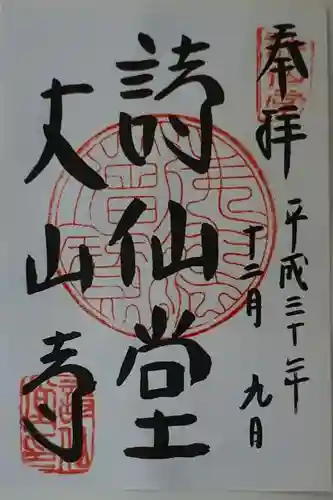 奉拝
平成三十年
十二月 九日
詩仙堂
丈山寺